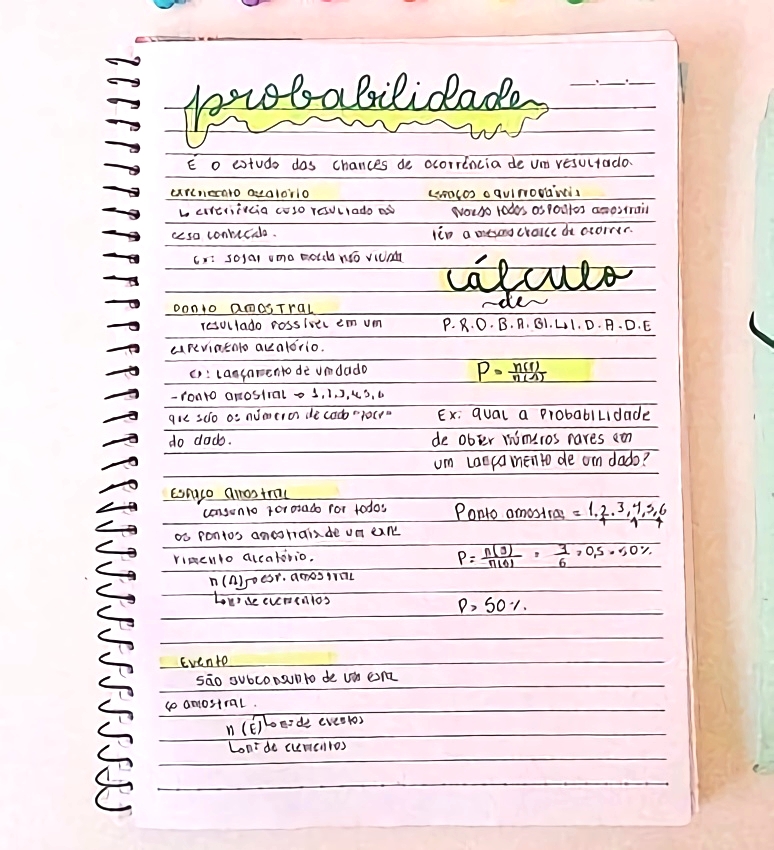 probabilidade
É o estudo das chances de ocorrência de um resultado.
experimento aleatório
↳ experiência cujo resultado não
seja conhecido.
Ex: jogar uma moeda não viciada
Ponto amostral
resultado possível em um
experimento aleatório.
Ex: Lançamento de um dado
- Ponto amostral → 1,2,3,4,5,6
que são os números de cada "face"
do dado.
Espaço amostral
conjunto formado por todos
os pontos amostrais de um expe
rimento aleatório.
n(Ω) → esp. amostral
↳ nº de elementos
Evento
São subconjunto de um espa
ço amostral.
n(E) ↳ nº de eventos
↳ nº de elementos
espaços equiprováveis
quando todos os pontos amostrais
têm a mesma chance de ocorrer.
cálculo
~de~
P.R.O.B.A.BI.L.I.D.A.D.E
P = n(E)/n(Ω)
Ex: qual a probabilidade
de obter números pares em
um lançamento de um dado?
Ponto amostras = 1,2,3,4,5,6
P = n(E)/n(Ω) = 3/6 = 0,5 = 50%
P = 50%.